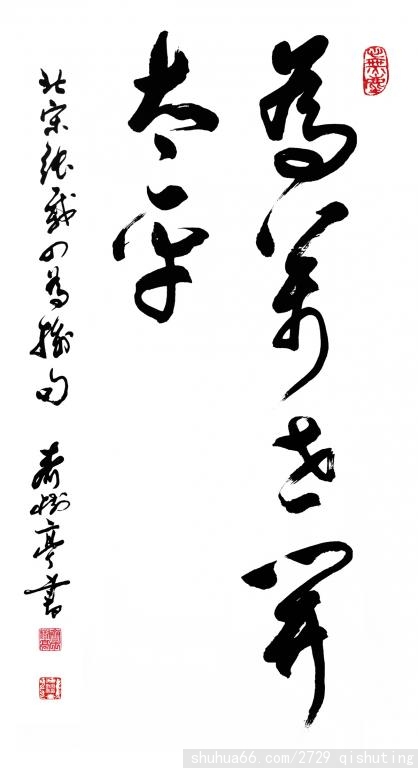 為萬世開
太平
北宋張載四為摘句 齊樹亭書
shuhua66.com/2729 qishuting